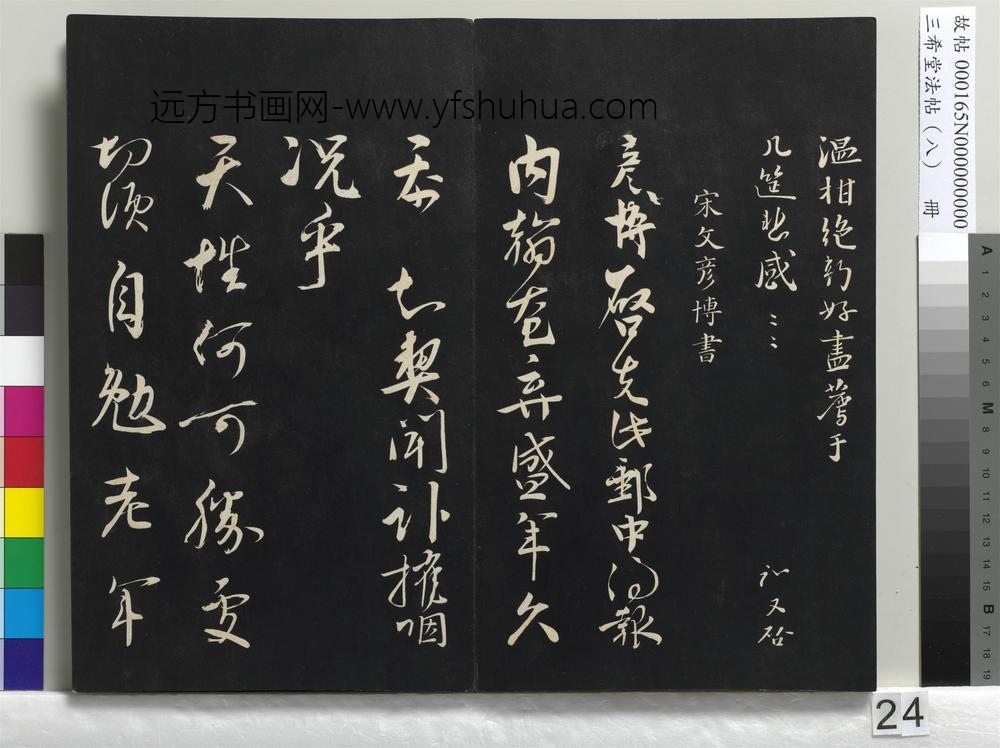 故帖 000165N000000000
三希堂法帖（八） 冊
远方书画网-www.yfshuhua.com
溫柑絶新好盡薦于
几筵悲感〻〻 又啓
宋文彥博書
彥博啓先此郵中得報
内翰奄弃盛年久
忝 知契聞訃摧咽
况乎
天性何可勝處
切須自勉老年
A 1 2 3 4 5 6 M 8 9 10 11 12 13 14 15 B 17 18 19
24